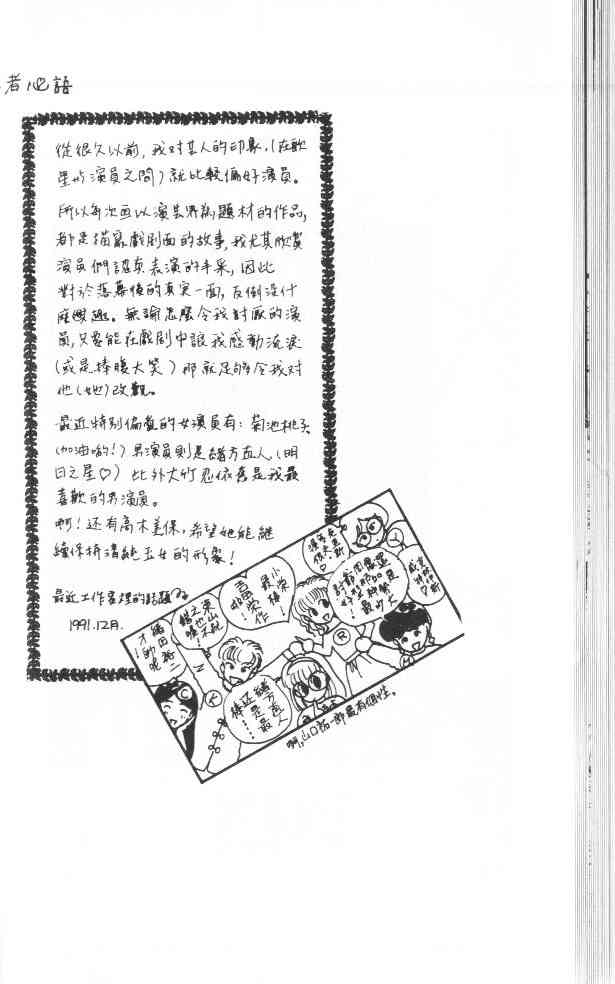 者心語
從很久以前,我對某人的印象,(在歌
星与演員之間)就比較偏好演員。
所以每次画以演芸界為題材的作品,
都是描寫戲剧面的故事,我尤其欣賞
演員們認真表演的丰采,因此
對於落幕後的真実一面,反倒沒什
麼興趣。無論怎麼令我討厭的演
員,只要能在戲剧中讓我感動流淚
(或是捧腹大笑)那就足够令我対
他(她)改觀。
最近特別偏愛的女演員有:菊池桃子
(加油喲!)男演員則是緒方直人,(明
日之星♡)此外大竹忍依舊是我最
喜歡的男演員。
啊!还有高木美保,希望她能継
續保持清純玉女的形象!
最近工作室裡的話題
1991.12月.
織田裕二
才
緒方直人
还是
最
棒
啊,山口祐一郎最有個性。